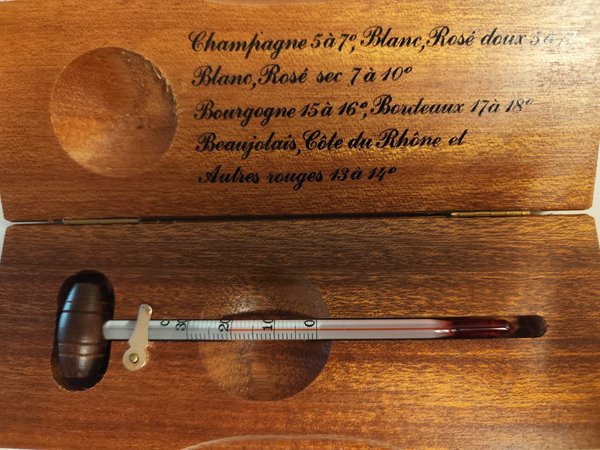 Champagne 5 à 7°, Blanc, Rosé doux 5 à 7°
Blanc, Rosé sec 7 à 10°
Bourgogne 15 à 16°, Bordeaux 17 à 18°
Beaujolais, Côte du Rhône et
Autres rouges 13 à 14°
30 20 10 0